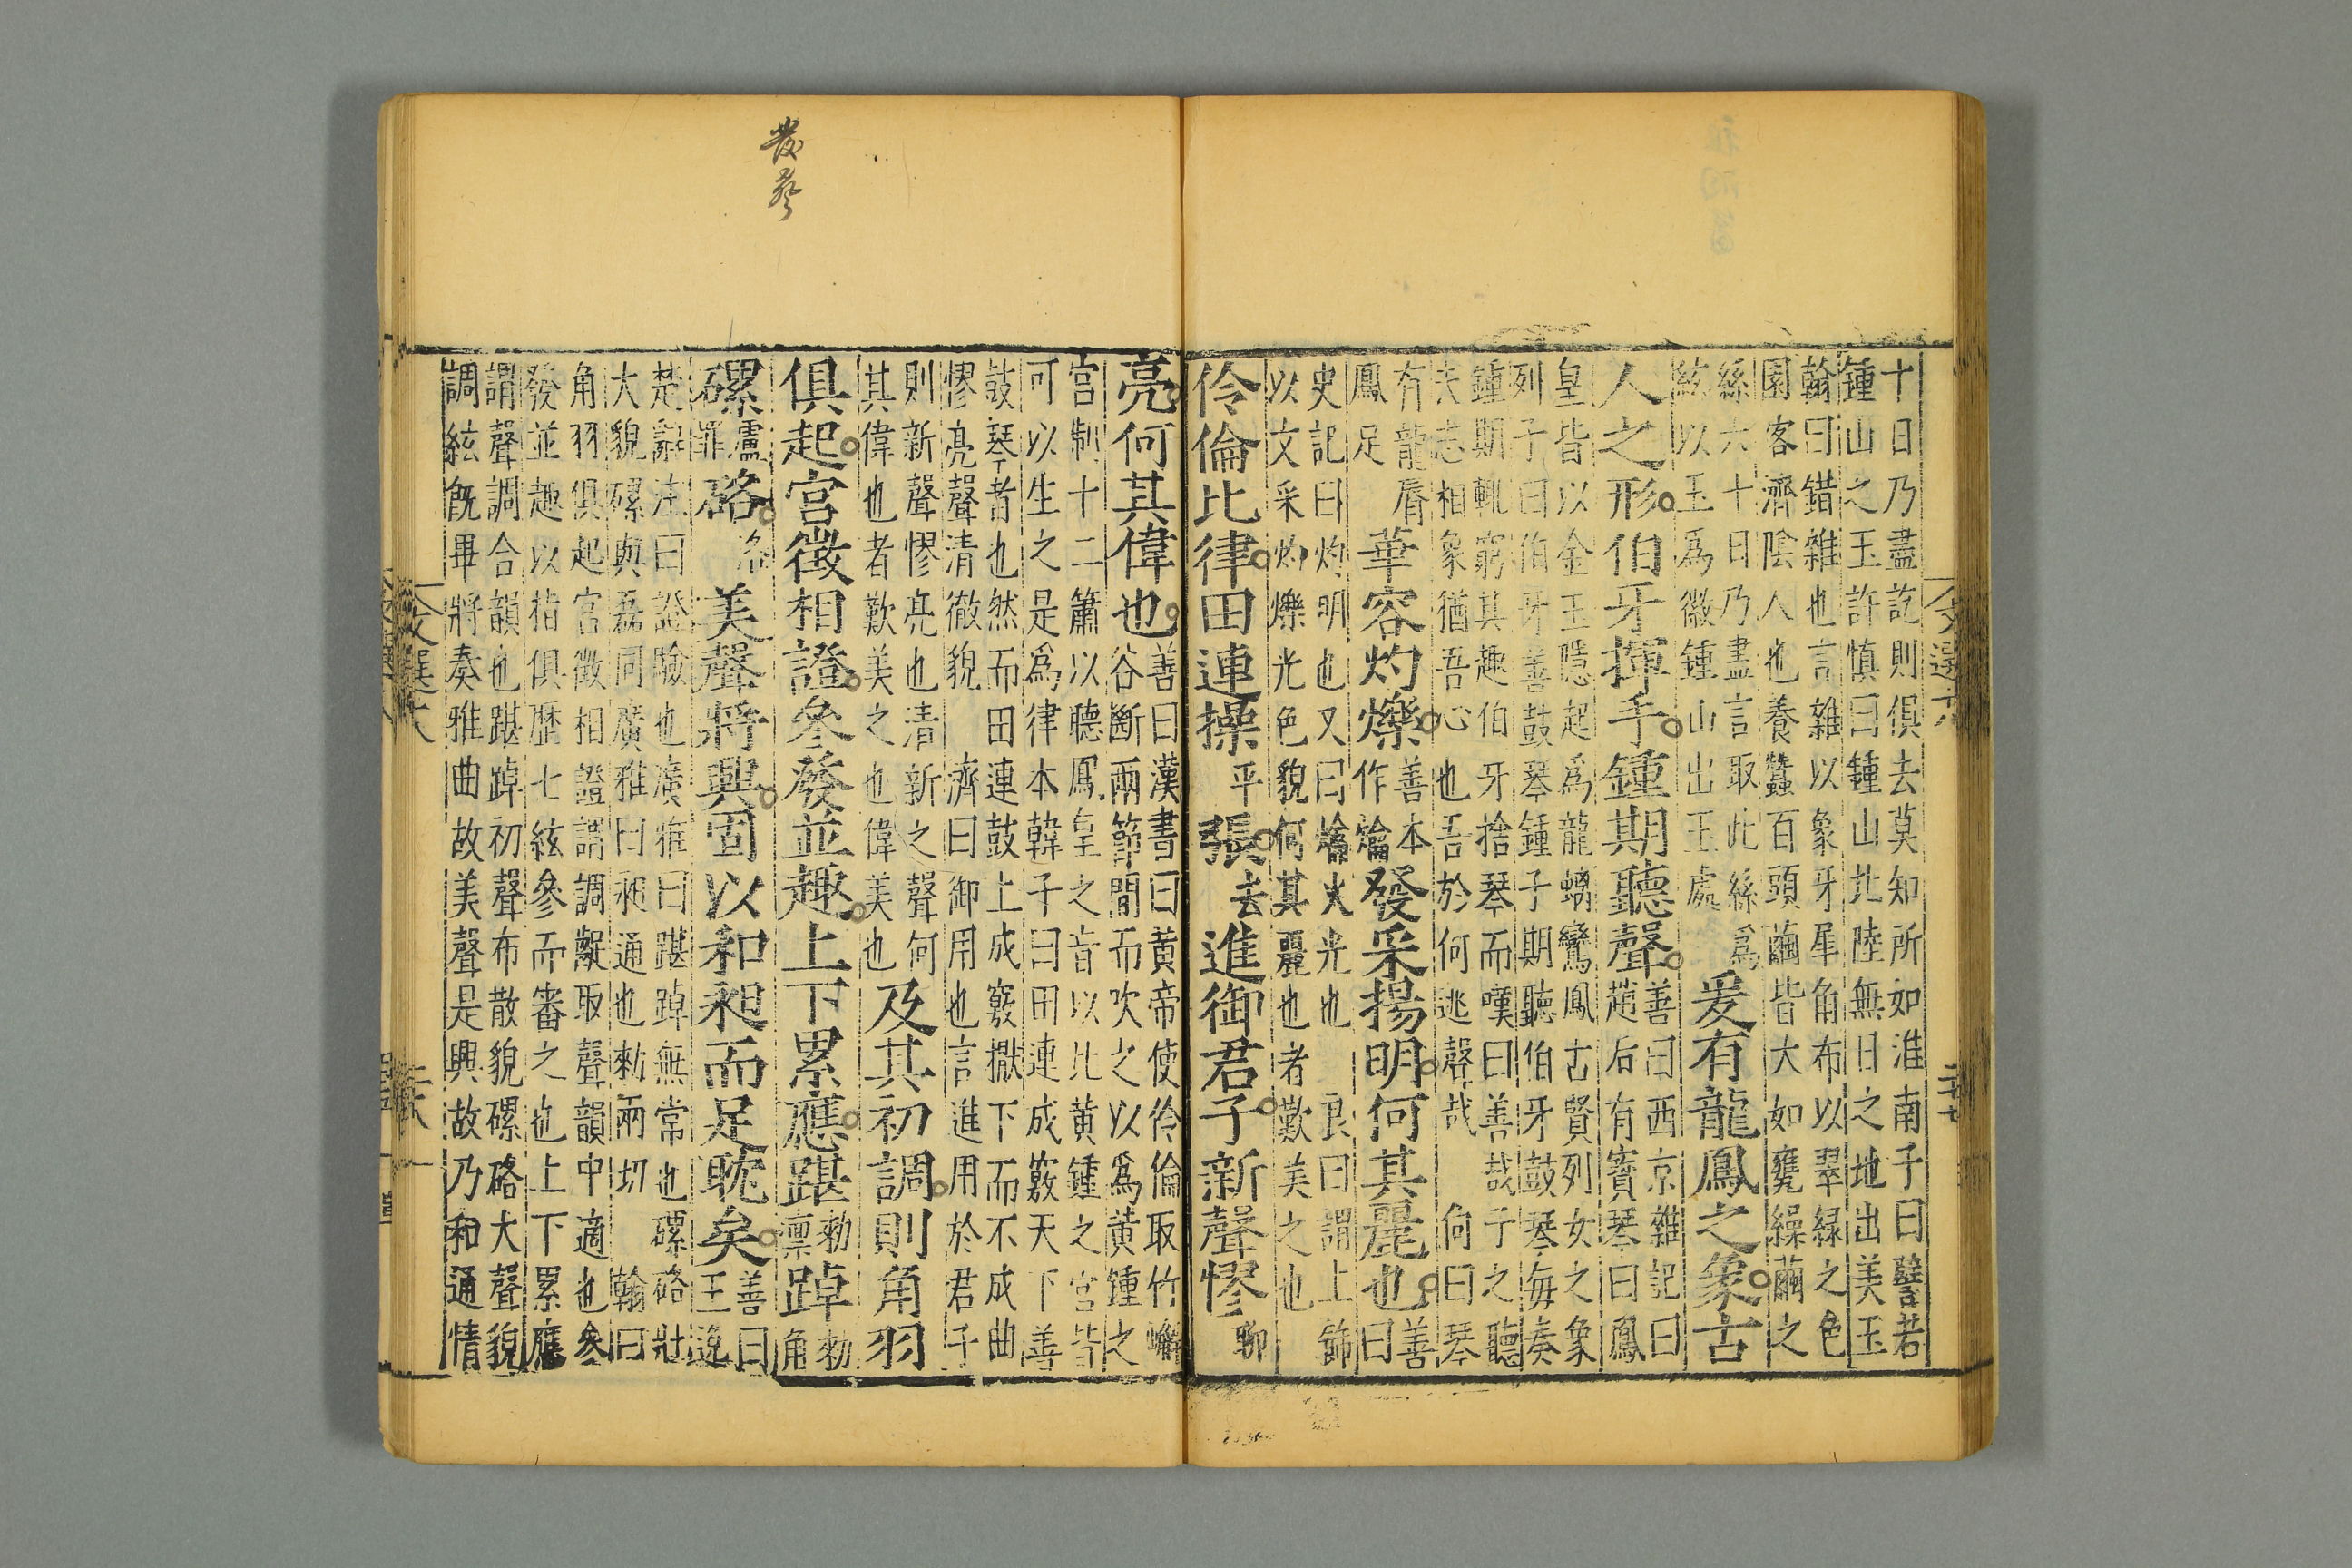 十日乃盡訖則俱去莫知所如淮南子曰譬若
鍾山之玉許慎曰鍾山北陸無日之地出美玉
翰曰錯雜也言雜以象牙犀角布以翠緑之色
園客濟陰人也養蠶百頭繭皆大如甕繰繭之
絲六十日乃盡言取此絲爲
絃以玉爲徽鍾山出玉處
爰有龍鳳之象古
人之形伯牙揮手鍾期聽聲
善曰西京雜記曰
趙后有寶琴曰鳳
皇皆以金玉隱起爲龍螭鸞鳳古賢列女之象
列子曰伯牙善鼓琴鍾子期聽伯牙鼓琴每奏
鍾期輒窮其趣伯牙捨琴而嘆曰善哉子之聽
夫志相象猶吾心也吾於何逃聲哉
向曰琴
有龍脣
鳳足
華容灼爚
善本
作爚
發采揚明何其麗也
善
曰
史記曰灼明也又曰爚火光也
良曰謂上飾
以文采灼爍光色貌何其麗也者歎美之也
伶倫比律田連操平張去進御君子新聲憀聊
亮何其偉也
善曰漢書曰黄帝使伶倫取竹嶰
谷斷兩節間而吹之以爲黄鍾之
宫制十二籥以聽鳳皇之音以比黄鍾之宫皆
可以生之是爲律本韓子曰田連成竅天下善
鼓琴者也然而田連鼓上成竅擫下而不成曲
憀亮聲清徹貌
濟曰御用也言進用於君子
則新聲憀亮也清新之聲何
其偉也者歎美之也偉美也
及其初調則角羽
俱起宫徵相證參發並趣上下累應踸
勑
凛
踔
勑
角
磥
盧
罪
硌
洛
美聲將興固以和昶而足耽矣
善曰
王逸
楚辭注曰證驗也廣雅曰踸踔無常也磥硌壯
大貌磥與磊同廣雅曰昶通也勑兩切
翰曰
角羽俱起宫徵相證謂調凝取聲韻中適也參
發並趣以指俱歷七絃參而審之也上下累應
謂聲調合韻也踸踔初聲布散貌磥硌大聲貌
調絃旣畢將奏雅曲故美聲是興故乃和通情
文選六